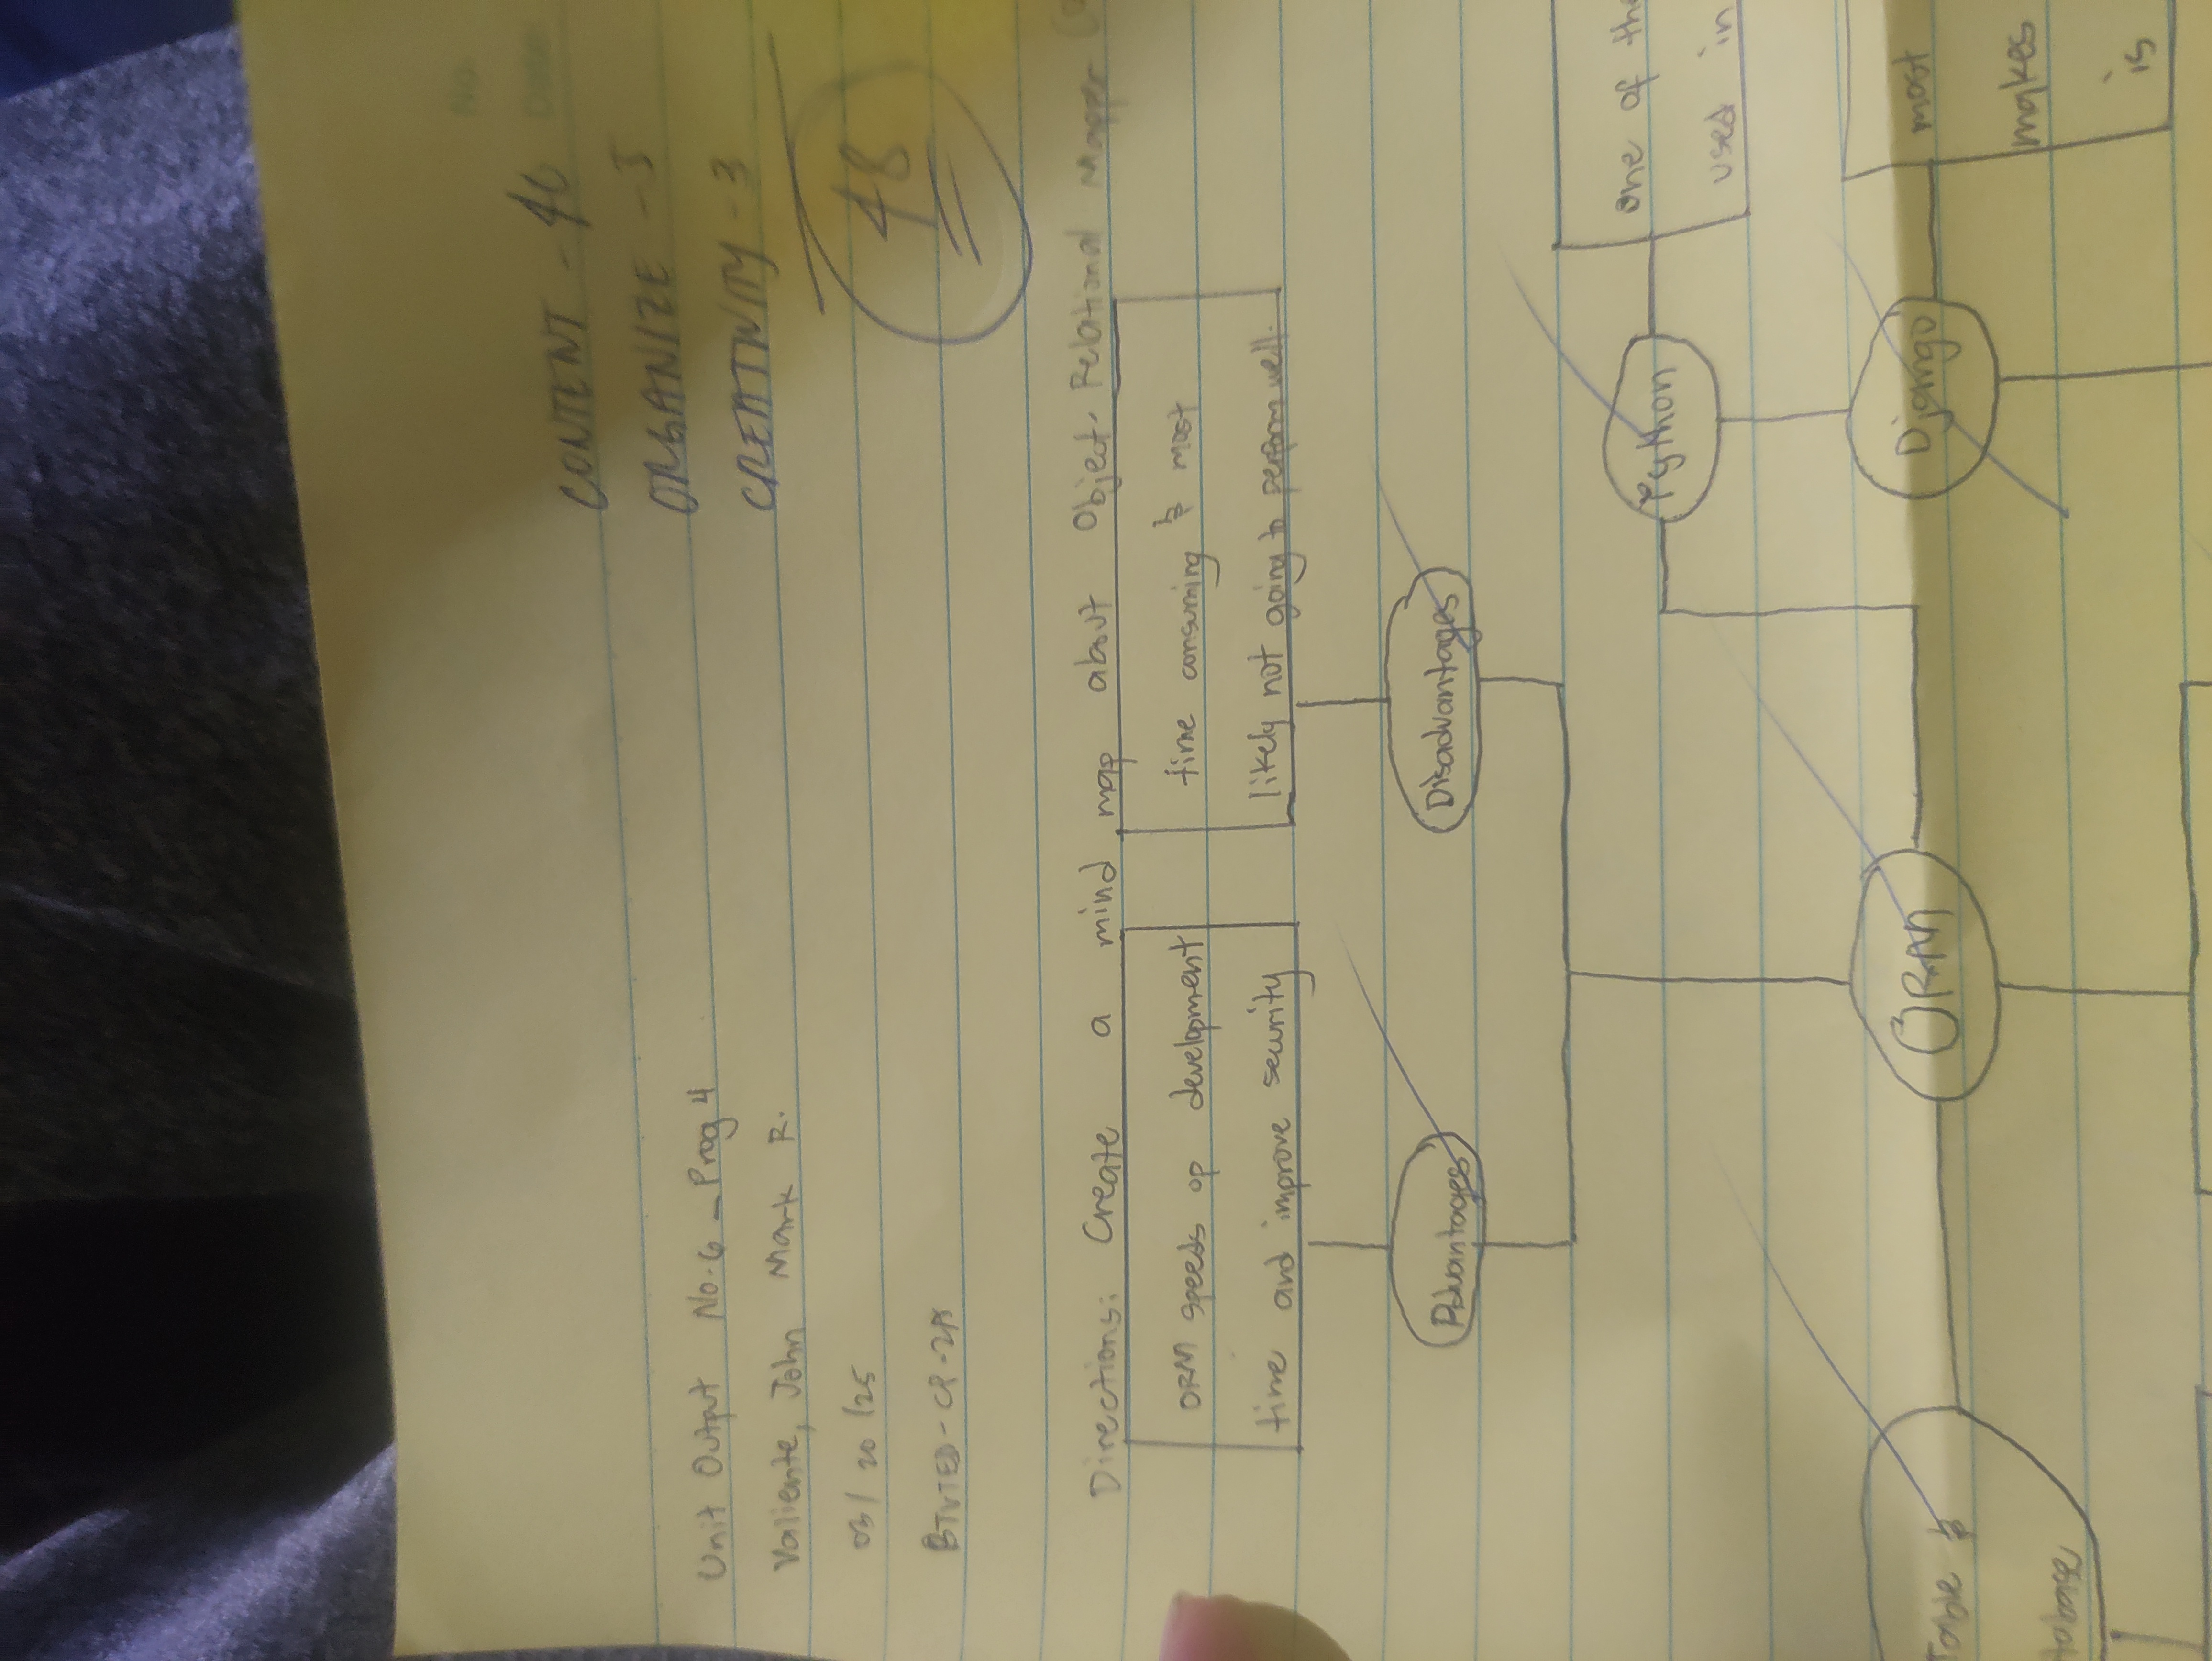 No.
Date:
CONTENT - 40
ORGANIZE - 5
CREATIVITY - 3
48
Unit Output No. 6 _ Prog 4
Valiente, John Mark R.
03/ 20 /25
BTVTED - CP - 2A
Directions: Create a mind map about Object-Relational Mapper
ORM speeds op development
time and improve security
time consuming & most
likely not going to perform well.
Advantages
Disadvantages
Python
one of the
used in
Table &
tabase
ORM
Django
most
makes
is